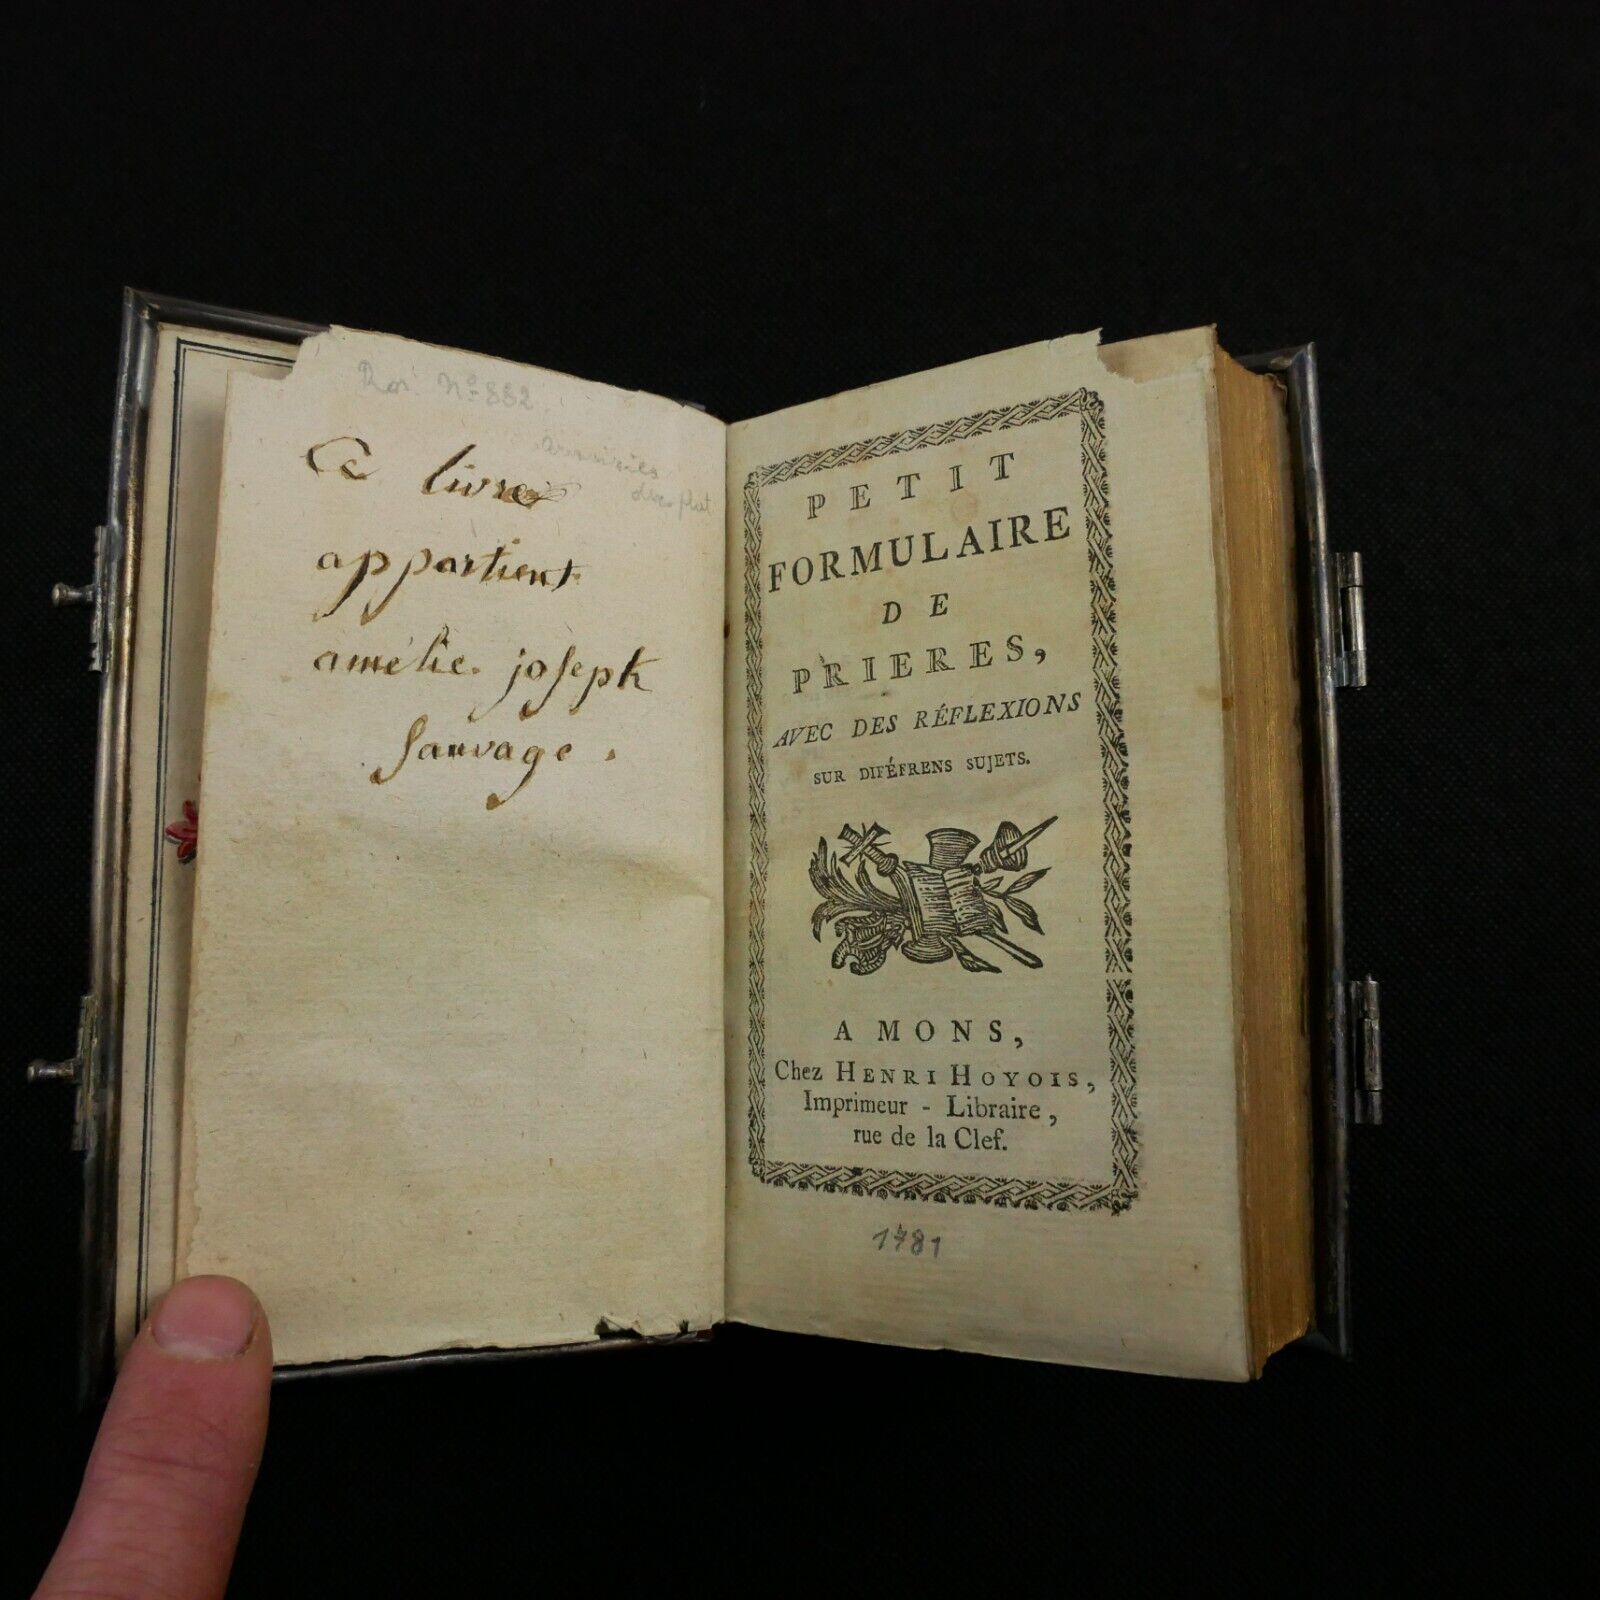 Roi. Nº 882
armoiries
sur plat
Ce livre
appartient
amélie. joseph
Sauvage.
PETIT
FORMULAIRE
DE
PRIERES,
AVEC DES RÉFLEXIONS
SUR DIFÉFRENS SUJETS.
A MONS,
Chez HENRI HOYOIS,
Imprimeur - Libraire,
rue de la Clef.
1781